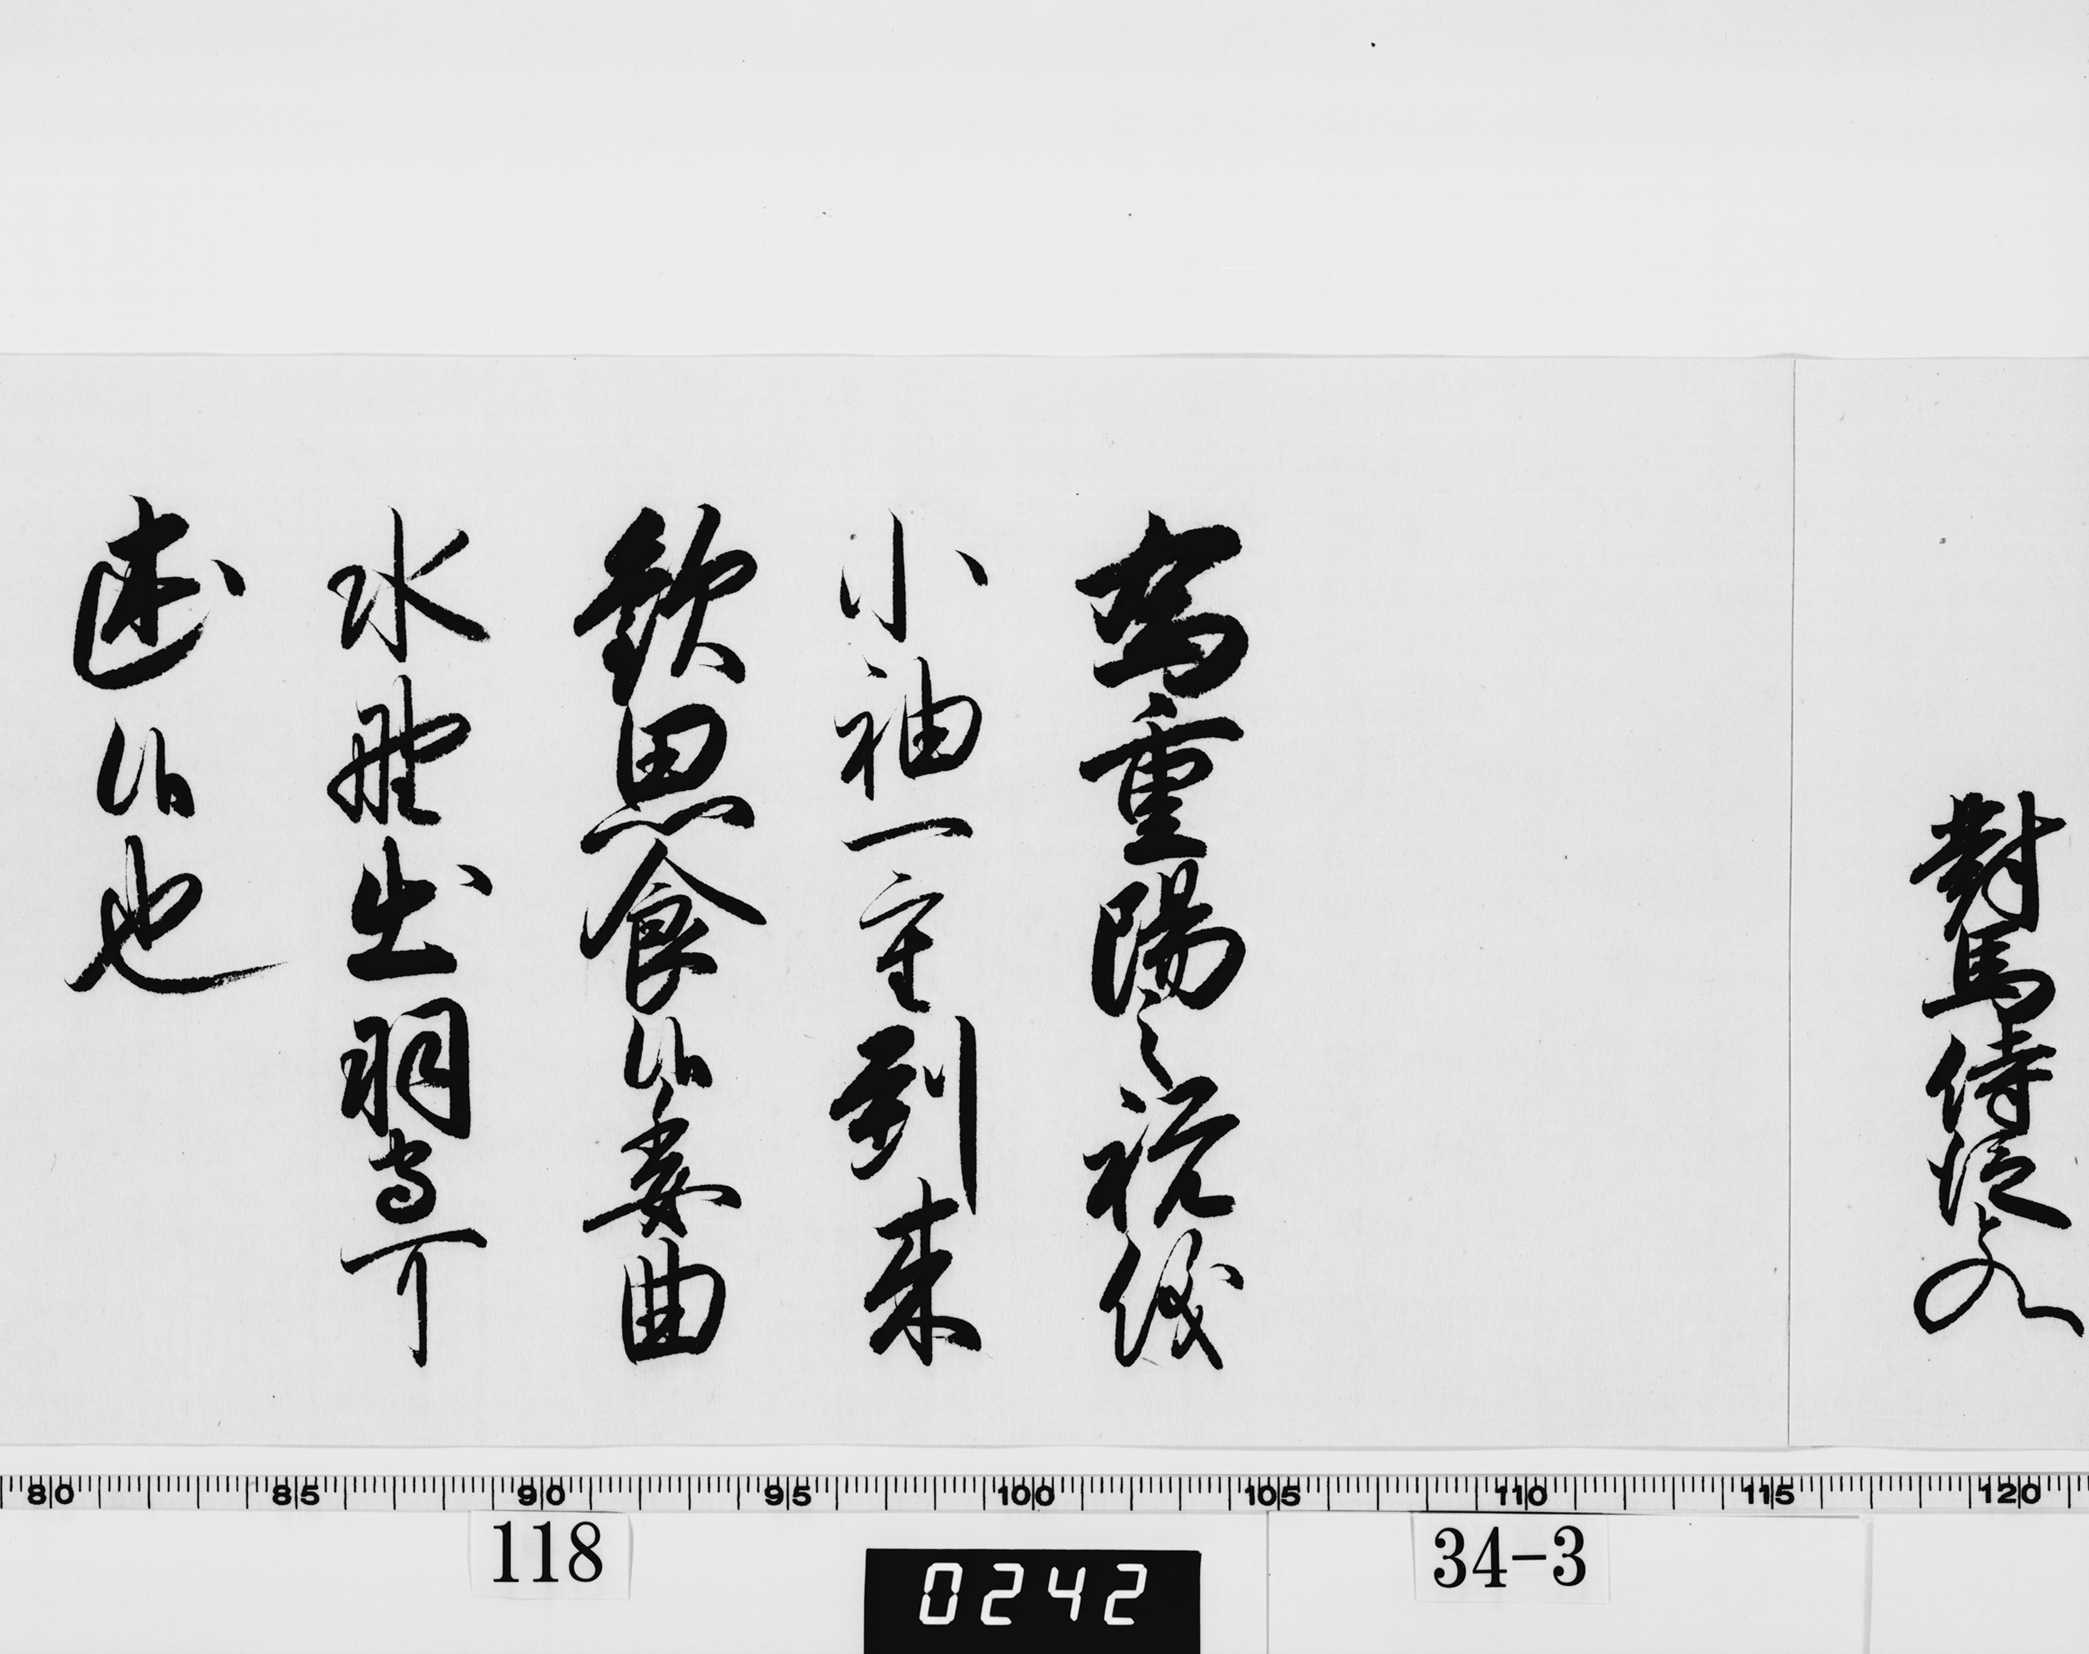 對馬侍従とのへ
為重陽之祝儀
小袖一重到来
歓思食候委曲
水野出羽守可
述候也
80 85 90 95 100 105 110 115 120
118
0242
34-3